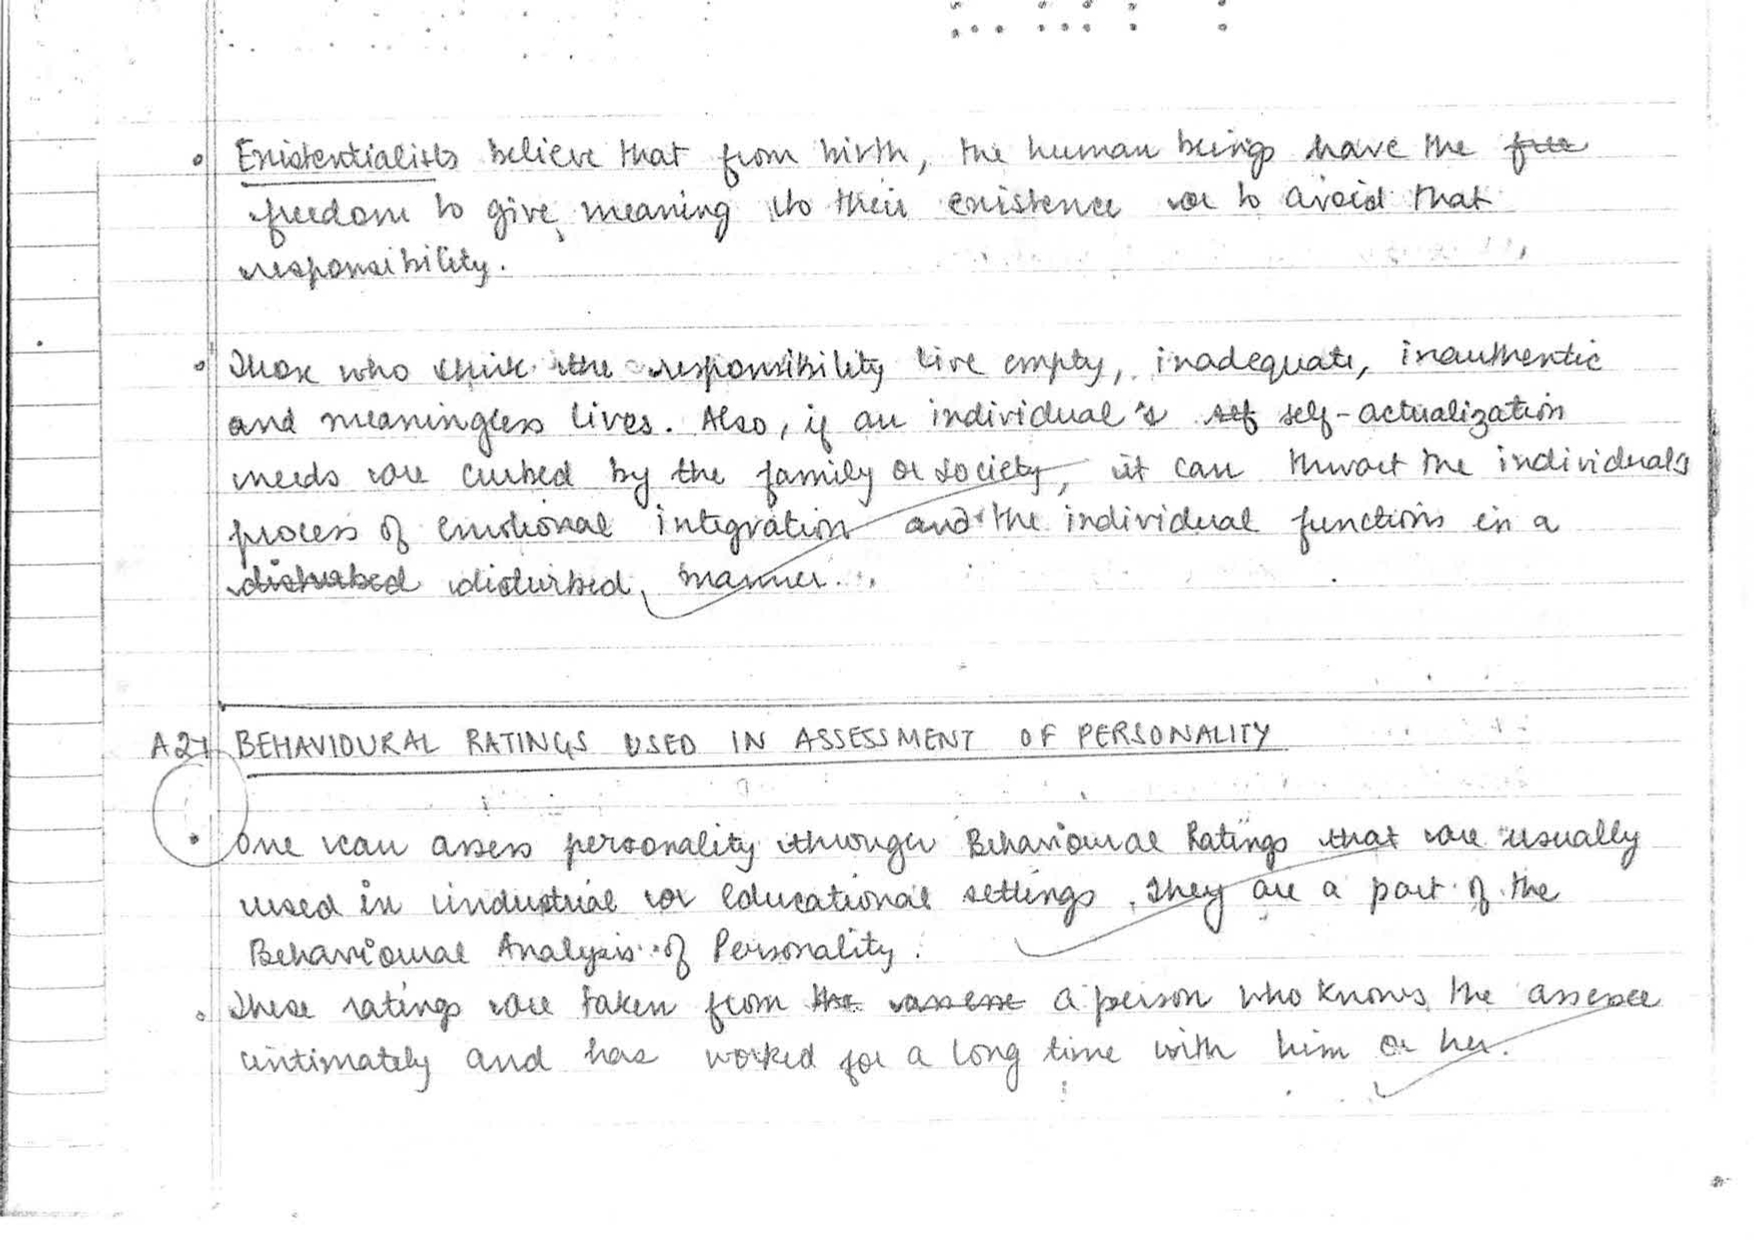 Existentialists believe that from birth, the human beings have the free
freedom to give meaning to their existence or to avoid that
responsibility.
Those who shirk the responsibility live empty, inadequate, inauthentic
and meaningless lives. Also, if an individual's self self-actualization
needs are curbed by the family or society, it can thwart the individual's
process of emotional integration and the individual functions in a
disturbed disturbed manner.
A21 BEHAVIOURAL RATINGS USED IN ASSESSMENT OF PERSONALITY
One can assess personality through Behavioural Ratings that are usually
used in industrial or Educational settings. They are a part of the
Behavioural Analysis of Personality.
These ratings are taken from the assesse a person who knows the assesee
intimately and has worked for a long time with him or her.